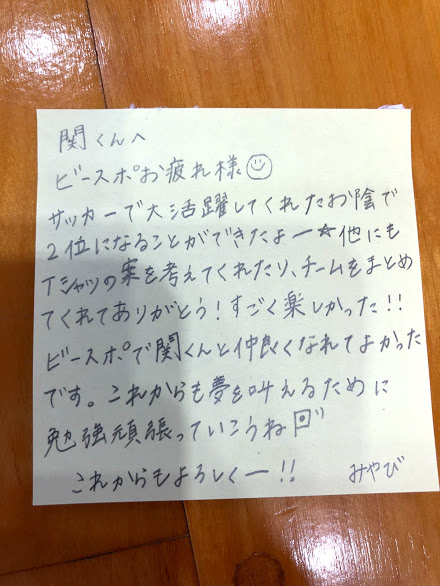 関くんへ
ビースポお疲れ様☺
サッカーで大活躍してくれたお陰で
2位になることができたよー☆他にも
Tシャツの案を考えてくれたり、チームをまとめ
てくれてありがとう!すごく楽しかった!!
ビースポで関くんと仲良くなれてよかった
です。これからも夢を叶えるために
勉強頑張っていこうね
これからもよろしくー!! みやび